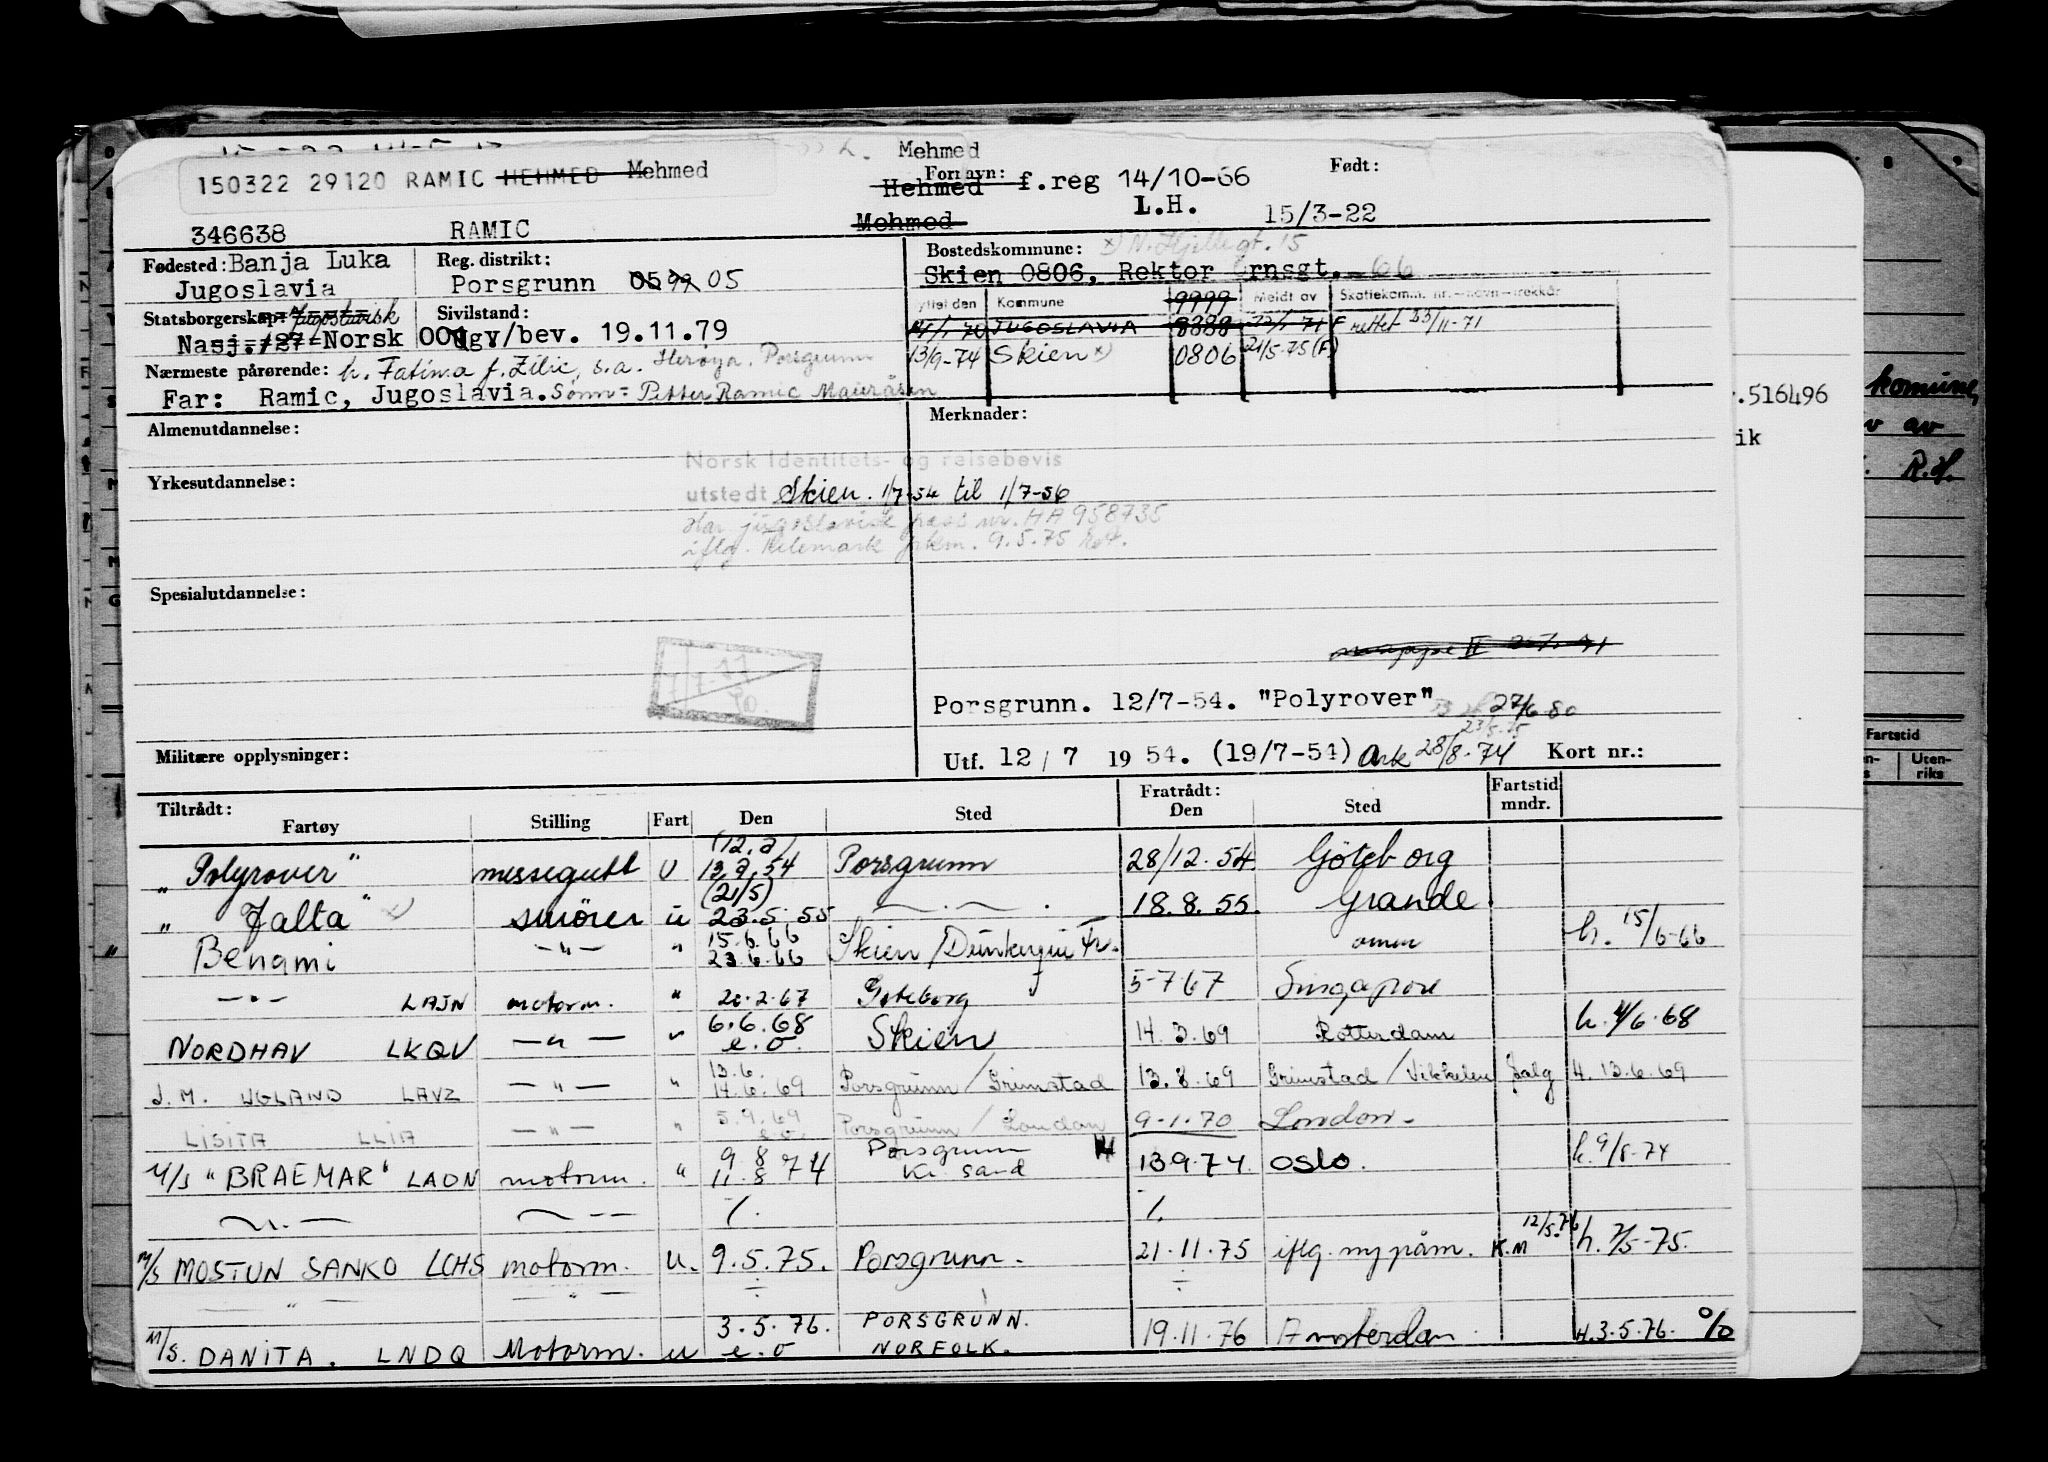 Mehmed
150322 29120 RAMIC HEHMED Mehmed
Fornavn:
Hehmed f.reg 14/10-66
Født:
L.H.
346638 RAMIC Mehmed 15/3-22
Fødested: Banja Luka
Jugoslavia
Reg. distrikt:
Porsgrunn 0599 05
Bostedskommune: x) N. Hjellegt. 15
Skien 0806, Rektor Ørnsgt. 66
Statsborgerskap: Jugoslavisk
Nasj. 127 Norsk 000
Sivilstand:
Ugv/bev. 19.11.79
Flyttet den Kommune 9999 Meldt av Skattekomm. nr.-navn-trekkår
14/1 70 JUGOSLAVIA 8888 22/1 71 F rettet 23/11-71
13/9-74 Skien x) 0806 21/5-75 (F)
Nærmeste pårørende: h. Fatima f. Zilic, s.a. Herøya, Porsgrunn
Far: Ramic, Jugoslavia. Sønn = Petter Ramic
Almenutdannelse:
Merknader:
Norsk Identitets- og reisebevis
Yrkesutdannelse:
utstedt Skien. 1/7-54 til 1/7-56
Har jugoslavisk pass nr. HA 958735
iflg. Telemark 9.5.75
Spesialutdannelse:
7/7-77
Porsgrunn. 12/7-54. "Polyrover" 27/6 80
23/5-75
Militære opplysninger:
Utf. 12 / 7 1954. (19/7-54) Ark 28/8-74 Kort nr.:
Tiltrådt:
Fartøy Stilling Fart Den Sted
Fratrådt:
Den Sted
Fartstid
mndr.
(12.7)
"Polyrover" messegutt U 13.7.54 Porsgrunn 28/12.54 Göteborg
(21/5)
" Jalta" x) smører u 23.5 55 —.—. 18.8.55. Grande
15.6.66
" Benami —"— " 23.6.66 Skien/Dunkerque Fr. h. 15/6-66
—"— LAJN motorm. " 20.2.67 Göteborg 5-7 67 Singapore
6.6.68
NORDHAV LKQV —"— " e.o. Skien 14.3.69 Rotterdam h. 4/6.68
13.6.
J.M. UGLAND LAVZ —"— " 14.6.69 Porsgrunn/Grimstad 13.8.69 Grimstad/Vikkilen Salg H. 13.6.69
5.9.69
LISITA LLIA —"— " e.o. Porsgrunn/London 9.1.70 London.
9 8 Porsgrunn
M/S "BRAEMAR" LAON motorm. " 11.8 74 Kr. sand 13.9.74. OSLO. h. 9/8-74
—"— —"— -/. -/.
M/S MOSTUN SANKO LCHS motorm. u. 9.5.75. Porsgrunn. 21.11.75 iflg. ny påm. K.M 12/5.76 h. 7/5-75.
—"— —"— ÷ ÷
3.5.76. PORSGRUNN.
M/S. DANITA. LNDQ Motorm. u e.o NORFOLK. 19.11.76 Amsterdam H. 3.5.76. %
.516496
ik
komune,
v av
R.H.
Fartstid
Uten-
riks